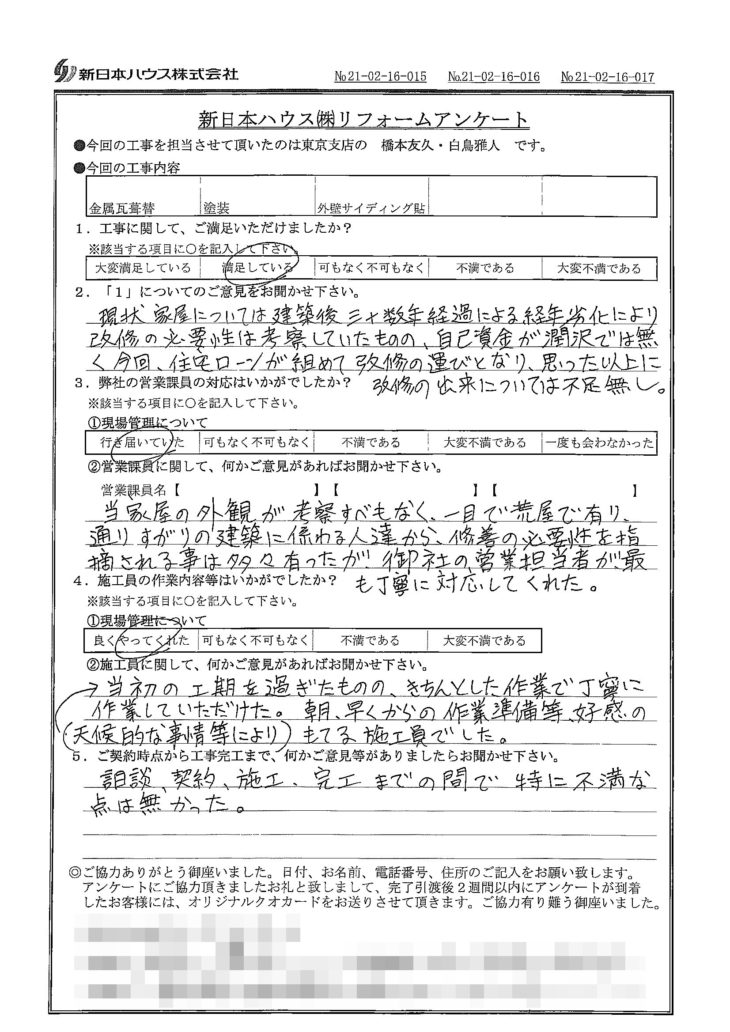 新日本ハウス株式会社
№21-02-16-015 №21-02-16-016 №21-02-16-017
新日本ハウス㈱リフォームアンケート
●今回の工事を担当させて頂いたのは東京支店の 橋本友久・白鳥雅人 です。
●今回の工事内容
金属瓦葺替 塗装 外壁サイディング貼
1．工事に関して、ご満足いただけましたか？
※該当する項目に○を記入して下さい。
大変満足している 満足している 可もなく不可もなく 不満である 大変不満である
2．「1」についてのご意見をお聞かせ下さい。
現状家屋については建築後三十数年経過による経年劣化により
改修の必要性は考察していたものの、自己資金が潤沢では無
く今回、住宅ローンが組めて改修の運びとなり、思った以上に
改修の出来については不足無し。
3．弊社の営業課員の対応はいかがでしたか？
※該当する項目に○を記入して下さい。
①現場管理について
行き届いていた 可もなく不可もなく 不満である 大変不満である 一度も会わなかった
②営業課員に関して、何かご意見があればお聞かせ下さい。
営業課員名【 】【 】【 】
当家屋の外観が考察すべもなく、一目で荒屋で有り、
通りすがりの建築に係わる人達から、修善の必要性を指
摘される事は多々有ったが、御社の営業担当者が、最
も丁寧に対応してくれた。
4．施工員の作業内容等はいかがでしたか？
※該当する項目に○を記入して下さい。
①現場管理について
良くやってくれた 可もなく不可もなく 不満である 大変不満である
②施工員に関して、何かご意見があればお聞かせ下さい。
→当初の工期を過ぎたものの、きちんとした作業で丁寧に
作業していただけた。朝、早くからの作業準備等、好感の
(天候的な事情等により) もてる施工員でした。
5．ご契約時点から工事完工まで、何かご意見等がありましたらお聞かせ下さい。
談、契約、施工、完工までの間で特に不満な
点は無かった。
◎ご協力ありがとう御座いました。日付、お名前、電話番号、住所のご記入をお願い致します。
アンケートにご協力頂きましたお礼と致しまして、完了引渡後2週間以内にアンケートが到着
したお客様には、オリジナルクオカードをお送りさせて頂きます。ご協力有り難う御座いました。